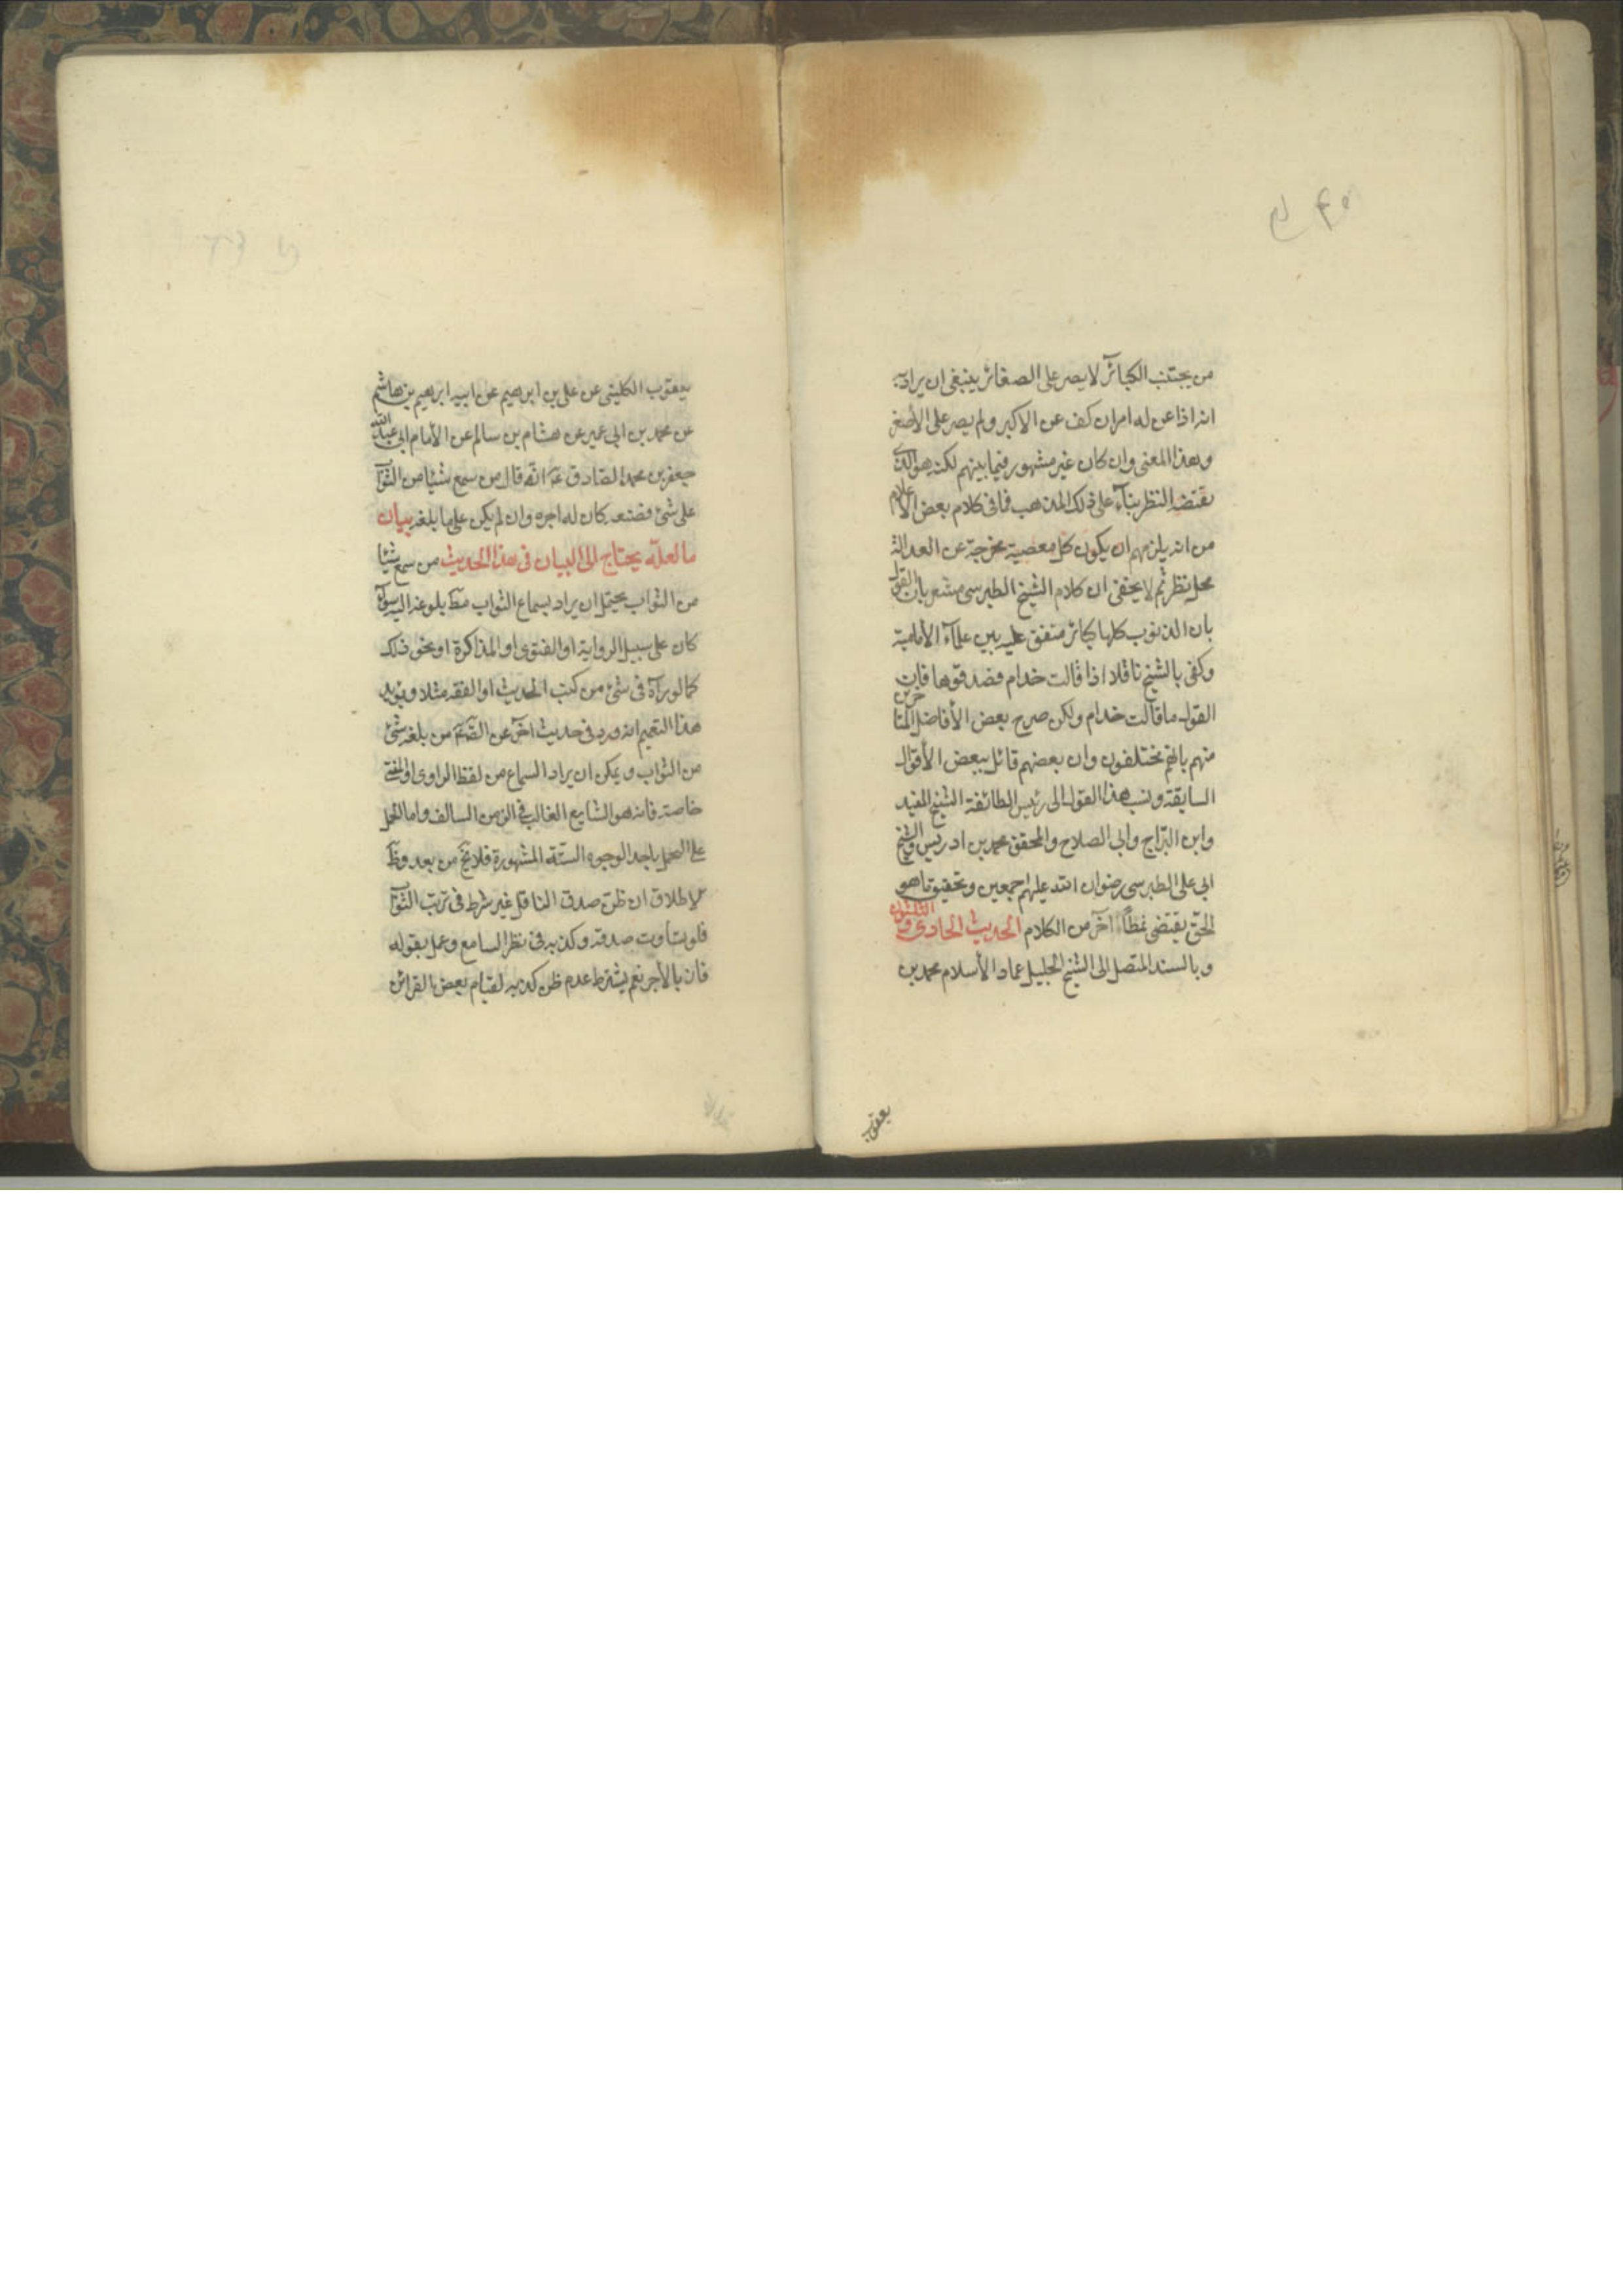 من يجتنب الكبائر لا يصر على الصغائر ينبغى ان يراد به
انه اذا عن له امران كف عن الاكبر ولم يصر على الأصغر
وهذا المعنى وان كان غير مشهور فيما بينهم لكنه هو الذى
يقتضه النظر بناء على ذلك المذهب فما فى كلام بعض الأعلام
من انه يلزمهم ان يكون كل معصية مخرجة عن العدالة
محل نظر ثم لا يخفى ان كلام الشيخ الطبرسى مشعر بان القول
بان الذنوب كلها كبائر متفق عليه بين علماء الأمامية
وكفى بالشيخ ناقلا اذا قالت خدام فصدقوها فان
القول ما قالت خدام ولكن صرح بعض الأفاضل المتاخرين
منهم بانهم مختلفون وان بعضهم قائل ببعض الأقوال
السابقة ونسب هذا القول الى رئيس الطائفة الشيخ المفيد
وابن البراج وابى الصلاح والمحقق محمد بن ادريس والشيخ
ابى على الطبرسى رضوان الله عليهم اجمعين وتحقيق ما هو
الحق يقتضى نمطاً آخر من الكلام الحديث الحادى والثلثون
وبالسند المتصل الى الشيخ الجليل عماد الأسلام محمد بن
يعقوب
يعقوب الكلينى عن على بن ابرهيم عن ابيه ابرهيم بن هاشم
عن محمد بن ابى عمير عن هشام بن سالم عن الأمام ابى عبد الله
جعفر بن محمد الصادق انه قال من سمع شيئا من الثواب
على شئ فصنعه كان له اجره وان لم يكن على ما بلغه بيان
ما لعله يحتاج الى البيان فى هذا الحديث من سمع شيئا
من الثواب يحتمل ان يراد بسماع الثواب مطـ بلوغه اليه سواء
كان على سبيل الرواية او الفتوى او المذاكرة او نحو ذلك
كما لو رآه فى شئ من كتب الحديث او الفقه مثلا ويؤيد
هذا التعميم انه ورد فى حديث آخر عن الصـ من بلغه شئ
من الثواب ويمكن ان يراد السماع من لفظ الراوى او المفتى
خاصة فانه هو الشايع الغالب فى الزمن السالف واما الحمل
على التحمل باحد الوجوه الستة المشهورة فلا يخ من بعد وظـ
الاطلاق ان ظن صدق الناقل غير شرط فى ترتب الثواب
فلو تساوت صدقه وكذبه فى نظر السامع وعمل بقوله
فاز بالأجر نعم يشترط عدم ظن كذبه لقيام بعض القرائن